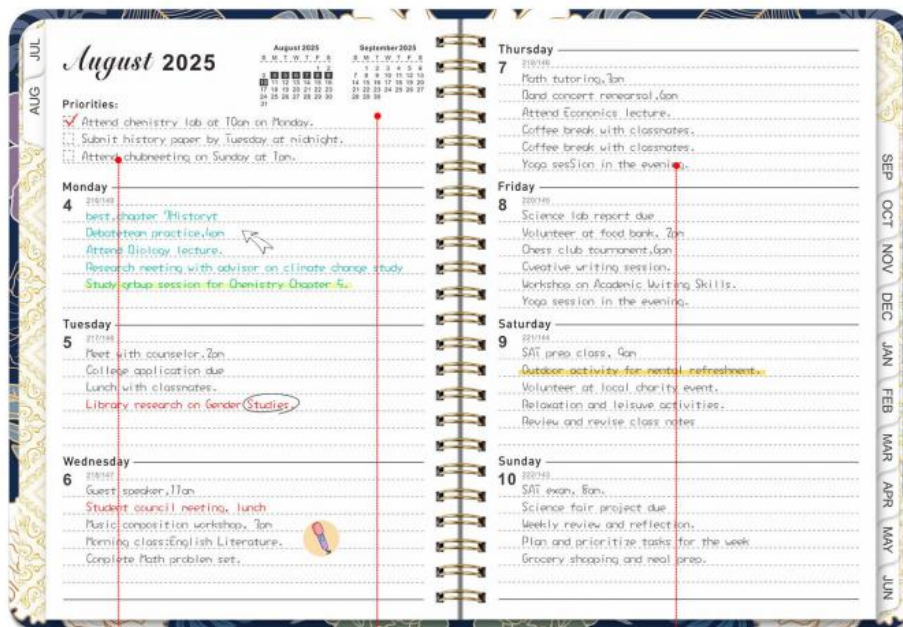 JUL
AUG
August 2025
August 2025
S M T W T F S
1 2
3 4 5 6 7 8 9
10 11 12 13 14 15 16
17 18 19 20 21 22 23
24 25 26 27 28 29 30
31
September 2025
S M T W T F S
1 2 3 4 5 6
7 8 9 10 11 12 13
14 15 16 17 18 19 20
21 22 23 24 25 26 27
28 29 30
Priorities:
Attend chemistry lab at 10am on Monday.
Submit history paper by Tuesday at midnight.
Attend chubneeting on Sunday at 1pm.
Monday
4
216/149
best,chapter 7Historyt
Debateteam practice,4pm
Attend Biology lecture.
Research meeting with advisor on climate change study
Study grbup session for Chemistry Chapter 5.
Tuesday
5
217/148
Meet with counselor,2pm
College application due
Lunch with classmates.
Library research on Gender Studies.
Wednesday
6
218/147
Guest speaker,11am
Student council meeting, lunch
Music composition workshop, 3pm
Morning class:English Literature.
Complete Math problem set.
Thursday
7
219/146
Math tutoring,3pm
Band concert renearsal,6pm
Attend Economics lecture.
Coffee break with classmates.
Coffee break with classmates.
Yoga sesSion in the evening.
Friday
8
220/145
Science lab report due
Volunteer at food bank, 2pm
Chess club tournament,6pm
Cveative writing session.
Workshop on Academic Writing Skills.
Yoga session in the evening.
Saturday
9
221/144
SAT prep class, 9am
Outdoor activity for mental refreshment.
Volunteer at local charity event.
Relaxation and leisuve activities.
Review and revise class notes
Sunday
10
222/143
SAT exam, 8am.
Science fair project due
Weekly review and reflection.
Plan and prioritize tasks for the week
Grocery shopping and meal prep.
SEP
OCT
NOV
DEC
JAN
FEB
MAR
APR
MAY
JUN